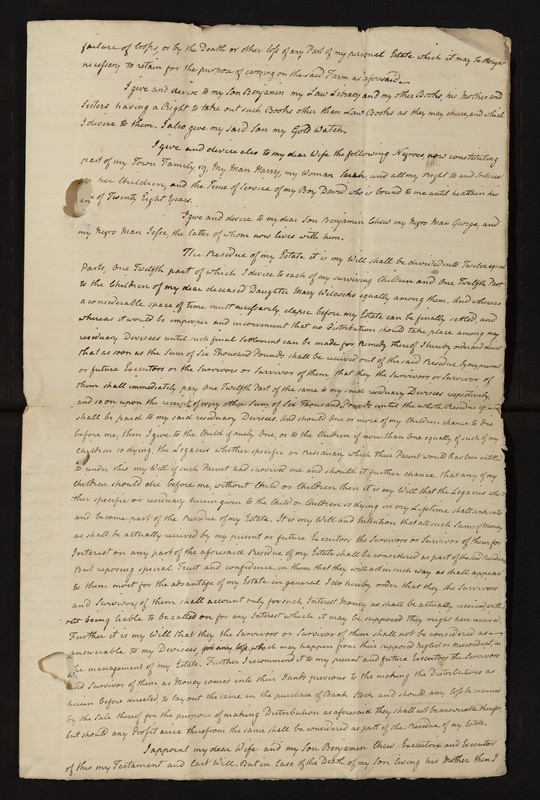 failure of Crops, or by the Death or other loss of any Part of my personal Estate which it may be thought
necessary to retain for the purpose of carrying on the said Farm as aforesaid.
I give and devise to my Son Benjamin my Law Library and my other Books, his Mother and
Sisters having a Right to take out such Books other than Law Books as they may chuse, and which
I devise to them. I also give my said Son my Gold Watch.
I give and devise also to my dear Wife the following Negroes now constituting
part of my Town Family, viz. My Man Harry, my Woman Sarah, and all my Right to and Interest
in her Children, and the Time of Service of my Boy David who is bound to me until he attain his
age of Twenty Eight Years.
I give and devise to my dear Son Benjamin Chew my Negro Man George, and
my Negro Man Jesse, the latter of whom now lives with him.
The Residue of my Estate it is my Will shall be divided into Twelve equal
Parts, One Twelfth part of which I devise to each of my surviving Children and One Twelfth Part
to the Children of my dear deceased Daughter Mary Wilcocks equally among them. And whereas
a considerable space of time must necessarily elapse before my Estate can be finally settled, and
whereas it would be improper and inconvenient that no distribution should take place among my
residuary Devisees until such final Settlement can be made for Remedy thereof I hereby order and direct
that as soon as the Sum of Six Thousand Pounds shall be received out of the said Residue by my present
or future Executors or the Survivors or Survivor of them, that they the Survivors or Survivor of
them shall immediately pay One Twelfth Part of the same to my said residuary Devisees respectively
and so on upon the receipt of every other Sum of Six Thousand Pounds until the whole Residue
shall be paid to my said residuary Devisees. And should one or more of my Children chance to die
before me, then I give to the Child if only One, or to the Children if more than one equally of such of my
Children so dying, the Legacies whether specific or Residuary which their Parent would have been entitled
to under this my Will if such Parent had survived me and should it further chance that any of my
Children should die before me, without Child or Children then it is my Will that the Legacies
specific or residuary herein given to the Child or Children so dying in my Lifetime shall sink into
and become part of the Residue of my Estate. It is my Will and Intention that all such Sums of Money
as shall be actually received by my present or future Executors the Survivors or Survivor of them for
Interest on any part of the aforesaid Residue of my Estate shall be considered as part of the said Residue
But reposing special Trust and confidence in them that they will act in such way as shall appear
to them most for the advantage of my Estate in general I do hereby order that they the Survivors
and Survivor of them shall account only for such Interest Money as shall be actually received with-
out being liable to be called on for any Interest which it may be supposed they might have received.
Further it is my Will that they the Survivors or Survivor of them shall not be considered as
answerable to my Devisees for any loss which may happen from their supposed neglect or misconduct in
the management of my Estate. Further I recommend it to my present and future Executors the Survivors
and Survivor of them as Money comes into their Hands previous to the making the Distributions as
herein before directed to lay out the same in the purchase of Bank Stock and should any loss be incurred
by the Sale thereof for the purpose of making Distribution as aforesaid they shall not be answerable therefor,
but should any Profit arise therefrom the same shall be considered as part of the Residue of my Estate.
I appoint my dear Wife and my Son Benjamin Chew Executrix and Executor
of this my Testament and last Will. But in Case of the Death of my Son living his Mother then I